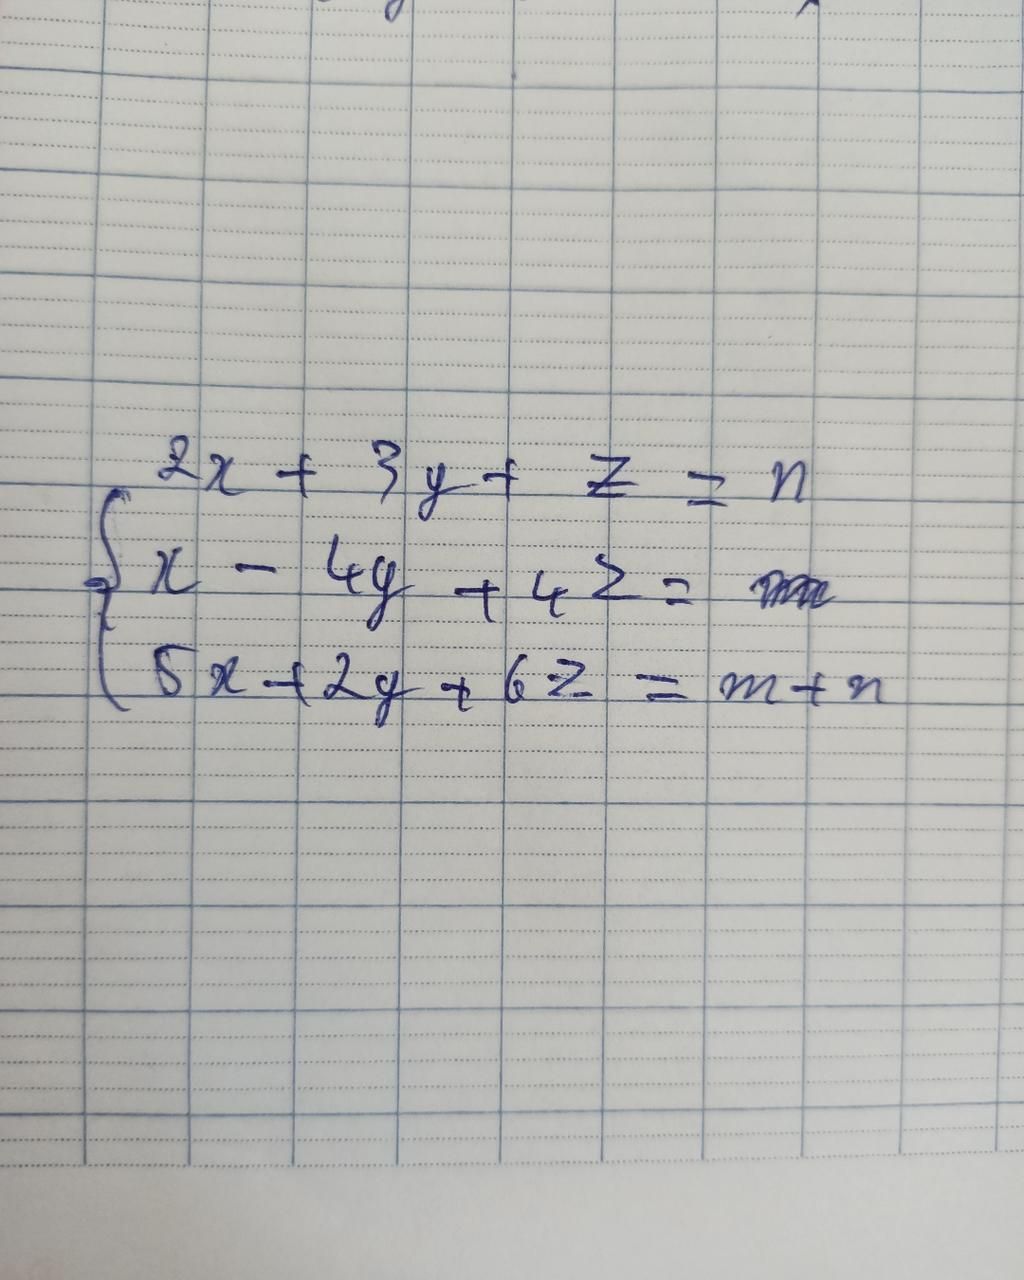 2x + 3y + z = n
x - 4y + 4z =
5x + 2y + 6z = m + n